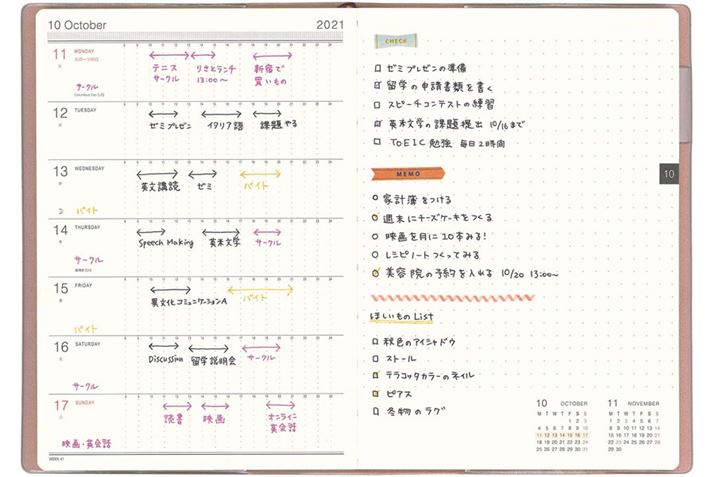 10 October
2021
11 MONDAY
スポーツの日
サークル
Columbus Day (US)
テニス
サークル
りさとランチ
13:00〜
新宿で
買いもの
12 TUESDAY
火
ゼミプレゼン
イタリア語
課題やる
13 WEDNESDAY
水
バイト
英文講読
ゼミ
バイト
14 THURSDAY
サークル
Speech Making
英米文学
サークル
15 FRIDAY
金
バイト
異文化コミュニケーションA
バイト
16 SATURDAY
土
サークル
Discussion
留学説明会
サークル
17 SUNDAY
日
映画・英会話
読書
映画
オンライン
英会話
WEEK 41
CHECK
ゼミプレゼンの準備
留学の申請書類を書く
スピーチコンテストの練習
英米文学の課題提出 10/16まで
TOEIC勉強 毎日2時間
MEMO
10
家計簿をつける
週末にチーズケーキをつくる
映画を月に10本みる!
レシピノートつくってみる
美容院の予約を入れる 10/20 13:00〜
ほしいもの List
秋色のアイシャドウ
ストール
テラコッタカラーのネイル
ピアス
冬物のラグ
10 OCTOBER
M T W T F S S
1 2 3
4 5 6 7 8 9 10
11 12 13 14 15 16 17
18 19 20 21 22 23 24
25 26 27 28 29 30 31
11 NOVEMBER
M T W T F S S
1 2 3 4 5 6 7
8 9 10 11 12 13 14
15 16 17 18 19 20 21
22 23 24 25 26 27 28
29 30